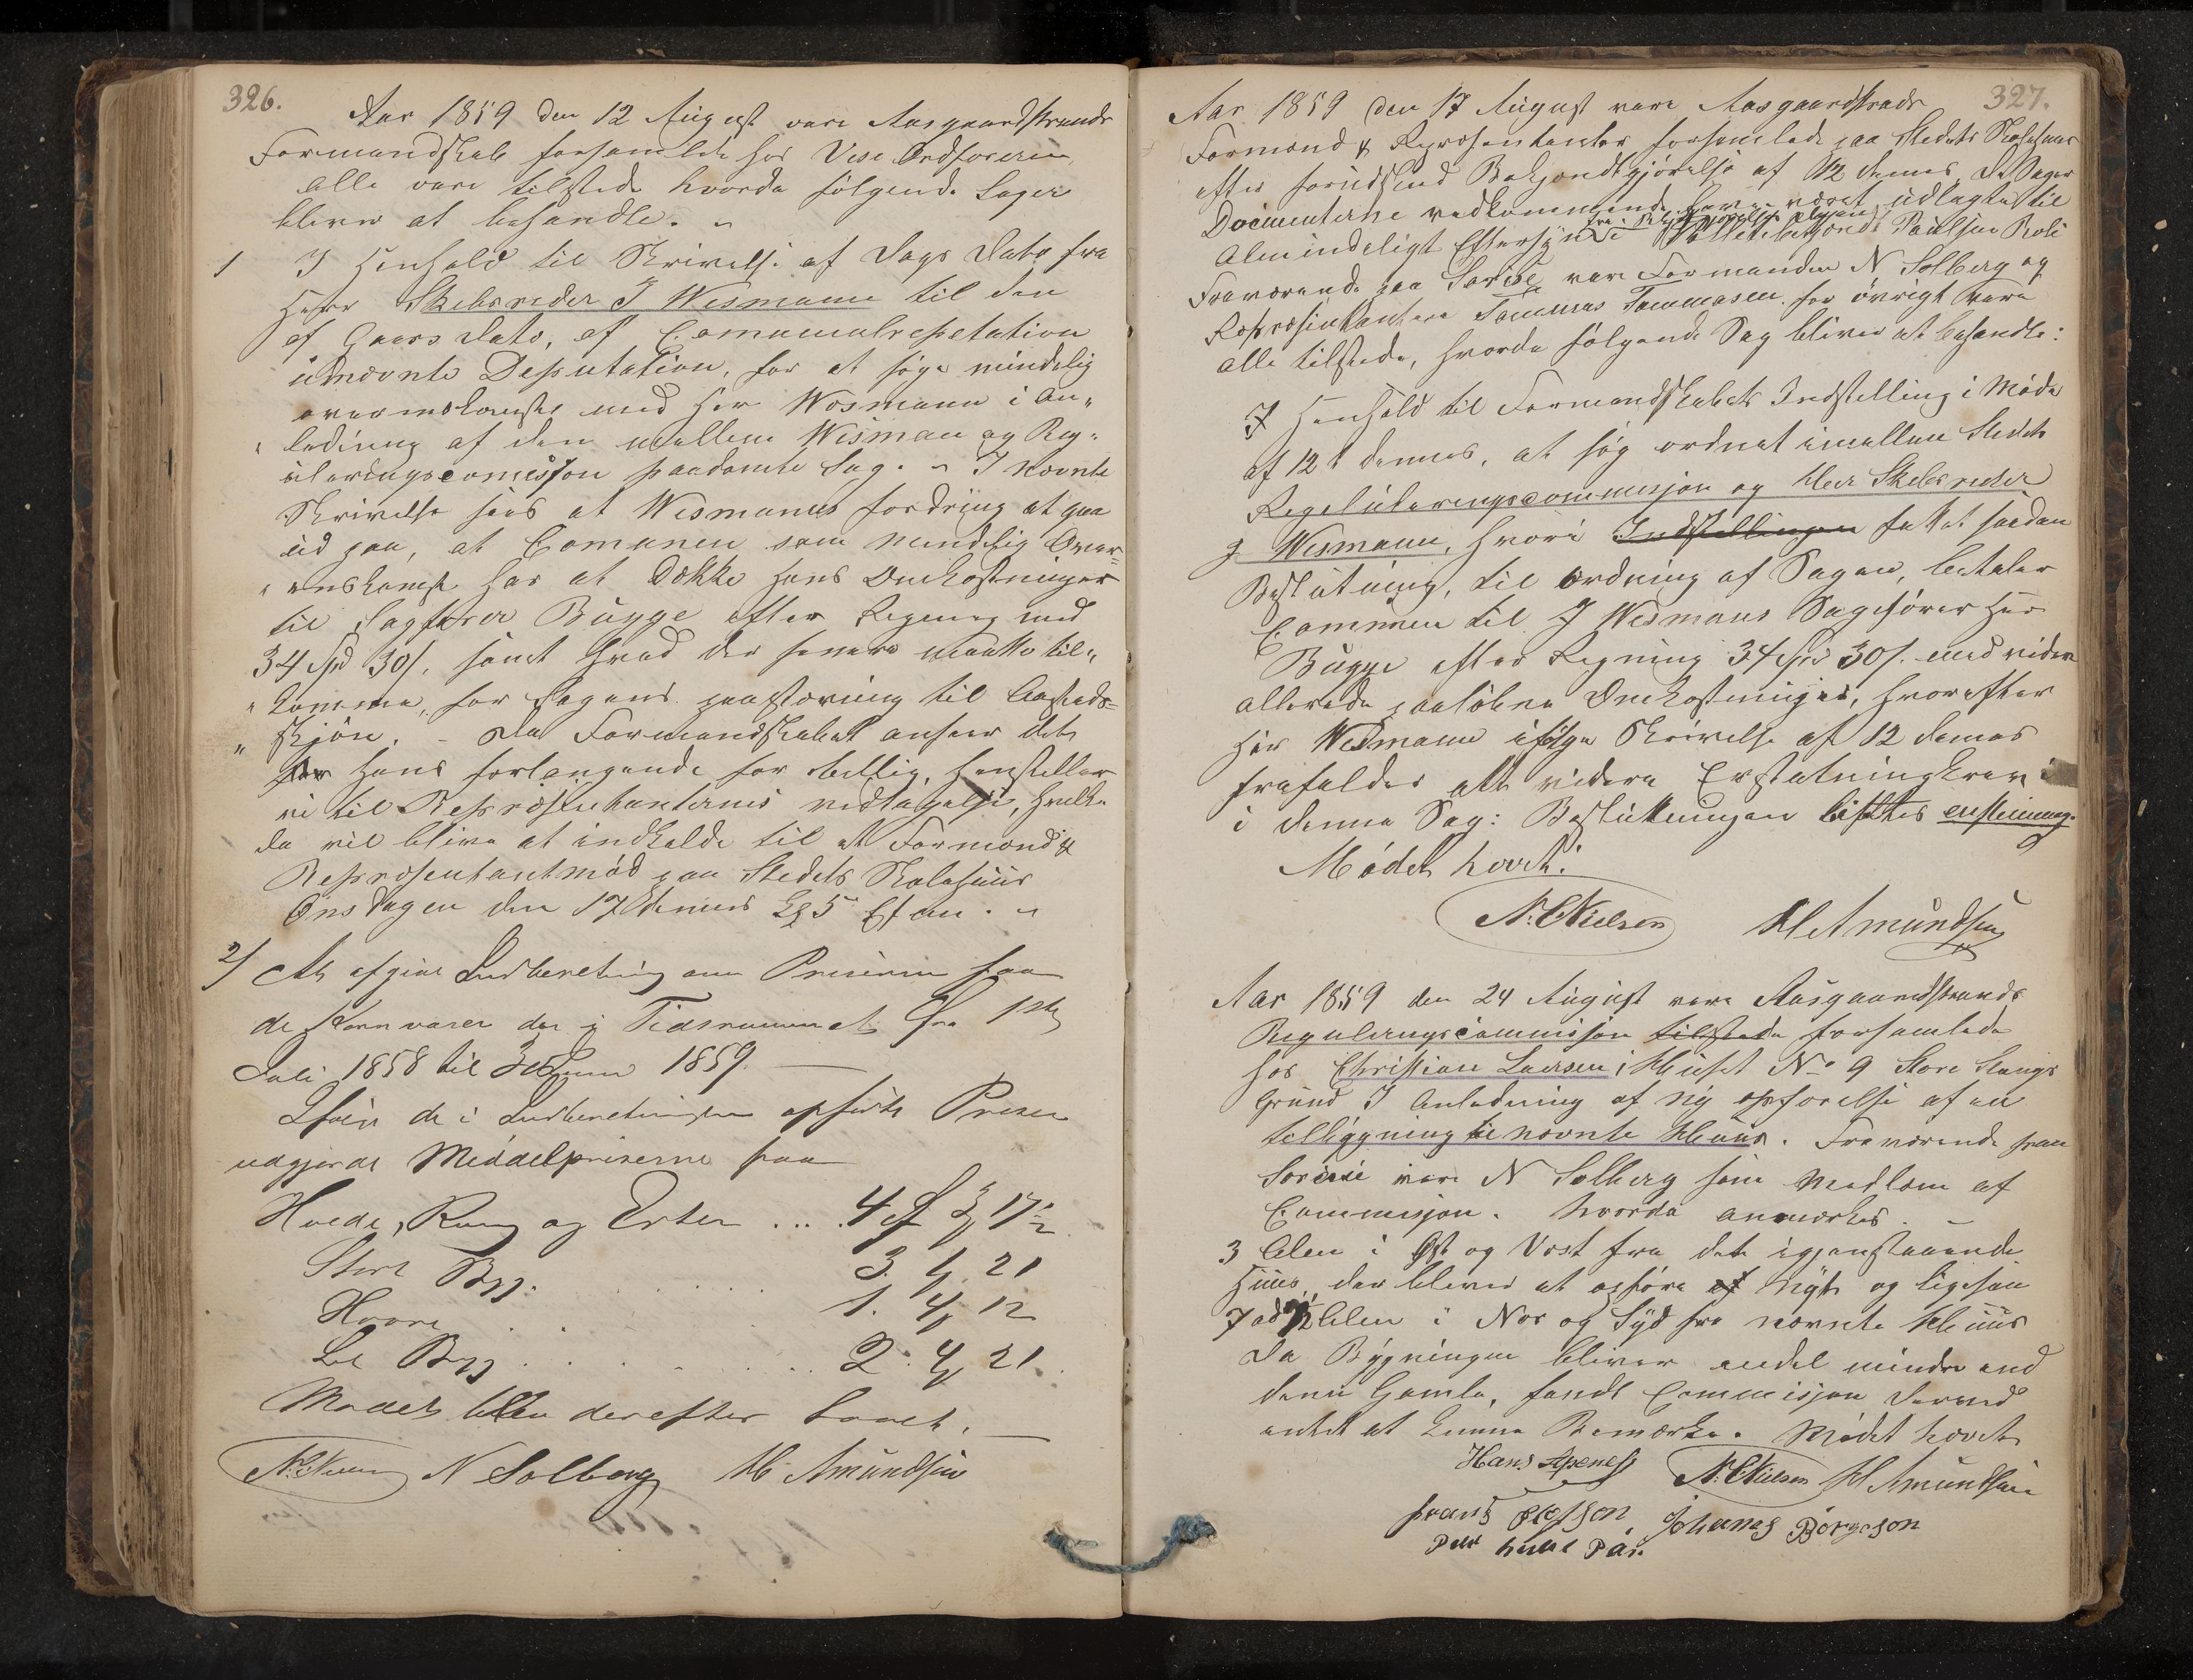 326.
Aar 1859 den 12 August vare Aasgaardstrands
Formandskab forsamlede hos Vise Ordføreren,
alle vare tilstede hvorda følgende Sager
blever at behandle. "
1 I Henhold til Skrivelse af Dags Dato fra
Herr Skibsreder J Wesmann til den
af Gaars Dato, af Comunalrepetation
udnævnte Deputation, for at søge mindelig
overenskomst med Her Wesmann i An„
„ledning af den mellem Wisman og Reg„
uleringscomisjon paadømte Sag. " I nævnte
Skrivelse sees at Wesmanns fordring at gaa
ud paa, at Comunen som mindelig Over=
„enskomst har at Dække Hans Omkostninger
til Sagfører Bugge efter Regning med
34 Spd 30 s, samt hvad der senere maatte til„
„komme, for Sagens paastevning til Aasteds=
„ skjøn. - Da Formandskabet anseer dette
Hans forlangende for billig, henstiller
vi til Repræsentanternes vedtagelse, hvilke
da vil blive at indkalde til et Formænd &
Represententmød paa Stedets Skolehuus
Onsdagen den 17 dennes Kl 5 Efm. "
2/ At afgive Indberetning om Priserne paa
de Kornvarer der i Tidsrummet fra 1ste
Juli 1858 til 30 Juni 1859.
de i Indberetningen opførte Priser
udgjorde Middelpriserne paa
Hvede, Rug og Erter ... 4 17½
Stort Byg. 3. 21
Havre 1. 4 12
Byg 2. 4 21.
Mødet blev derefter hævet.
N. C. Nielsen N Solberg H Amundsen
327.
Aar 1859 den 17 August vare Aasgaardstrands
Formænd & Represontanter forsamlede paa Stedets Skolehuus
efter forudskeed Bekjendtgjørelse af 12 dennes, Da Sagen
Documenterne vedkommende have været udlagte til
Almindeligt Eftersyn Paulsen Roli
Fraværende paa Sørise vare Formanden N Solberg og
Repræsentantere Tommas Tommasen. for øvrigt vare
alle tilstede, hvorda følgende Sag bliver at behandle:
I Henhold til Formandskabets Indstilling i Møde
af 12 dennes, at søg ordnet imellem Stedets
Reguleringscommisjon og Herr Skibsreder
J Wesmann, hvori Indstillingen fattet saadan
Beslutning, til ordning af Sagen, betaler
Commune til J Wesmans Sagefører Her
Bugge efter Regning 34 Spd 30 s. med viden
allerede paaløbne Omkostninger, hvorefter
Her Wesmann ifølge Skrivelse af 12 dennes
frafalder alt videre Erstatningskrav i
i denne Sag: Beslutningen vistes enstemmig.
Mødet hævet.
N. C. Nielsen H Amundsen
Aar 1859 den 24 August vare Aasgaardstrands
Regulerings commisjon tilstede forsamlede
hos Christian Larsen i Huset No 9 Store Stangs
Grund I Anledning af ny opførelse af en
tilbygning til nævnte Huus. Fraværende paa
Søreise vare N Solberg som Medlem af
Commisjon. hvorda anmærkes. -
3 Alen i Øst og Vest fra det igjenstaaende
Huus, der bliver at opføre af Nyt og ligesaa
7 ad ½ Alen i Nor og Syd fra nævnte Huus
Da Bygningen bliver endel mindre end
denn Gamle, fandt Commisjon derved
intet at kunne Bemærke. Mødet hævet
Hans Apenes N. C. Nielsen H Amundsen
frants olefson Johanes Börgeson